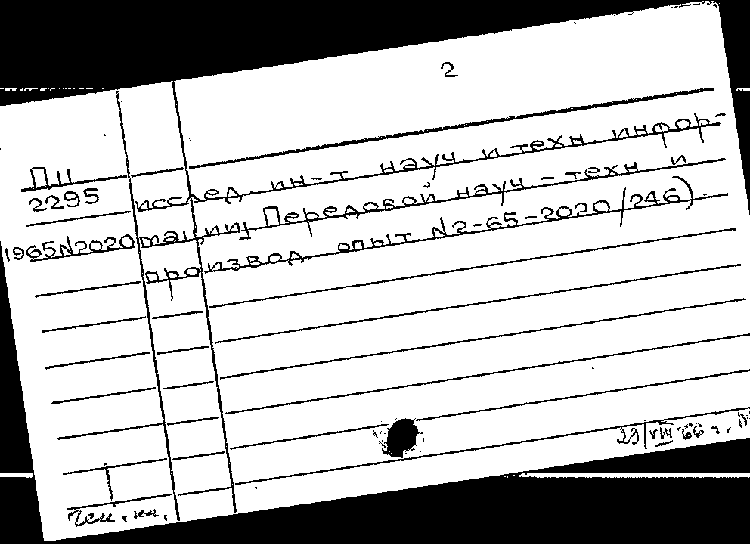 2
П11
2295
1965 N2020
исслед. ин-т науч. и техн. инфор-
мации Передовой науч-техн и
производ. опыт N2-65-2020/246).
23/VIII 66 г.